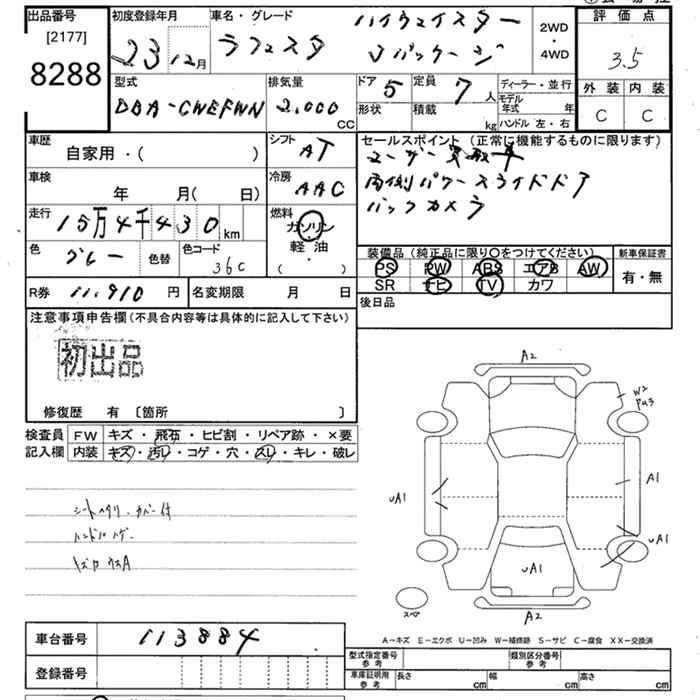 出品番号
[2177]
8288
初度登録年月
23 12月
車名・グレード
ラフェスタ
ハイウェイスター
Jパッケージ
2WD
・
4WD
評価点
3.5
外装 内装
C C
型式
DBA-CWEFWN
排気量
2.000 CC
ドア 5
定員 7 人
形状
積載 kg
ディーラー・並行
モデル年式 年
ハンドル 左・右
車歴
自家用・( )
シフト AT
車検
年 月( 日)
冷房 AAC
走行
15万4千430 km
燃料
ガソリン
軽・油
( ・ )
色 グレー 色替
色コード 36C
R券 11.910 円
名変期限 月 日
セールスポイント (正常に機能するものに限ります)
ユーザー買取車
両側パワースライドドア
バックカメラ
装備品 (純正品に限り〇をつけてください)
PS PW ABS エアB AW
SR ナビ TV カワ
新車保証書
有・無
後日品
注意事項申告欄 (不具合内容等は具体的に記入して下さい)
初出品
修復歴 有 〔箇所 〕
検査員記入欄
FW キズ・飛石・ヒビ割・リペア跡・×要
内装 キズ・汚レ・コゲ・穴・スレ・キレ・破レ
シートヘタリ・カバー付
ハンドルハゲ
A2
W2
A1
UA1
UA1
UA1
A2
スペア
A−キズ E−エクボ U−凹み W−補修跡 S−サビ C−腐食 XX−交換済
車台番号 113884
登録番号
型式指定番号 参考
類別区分番号 参考
車庫証明用 参考
長さ cm 幅 cm 高さ cm